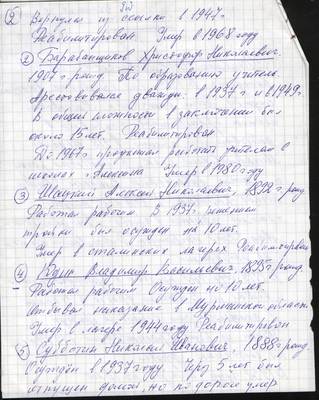 ② Вернулся из ссылки в 1947 г.
Реабилитирован Умер в 1968 году
② Барабанщиков Христофор Николаевич
1907 г рожд. По образованию учитель
Арестовывался дважды: в 1937 г и в 1949 г.
В общей сложности в заключении был
около 15 лет. Реабилитирован.
До 1967 г продолжал работать учителем в
школах г Умер в 1980 году
③ Алексей Николаевич, 1892 г рожд.
Работал рабочим В 1937 г решением
тройки был осужден на 10 лет.
Умер в сталинских лагерях Реабилитирован
④ Владимир Васильевич, 1895 г рожд.
Работал рабочим Осужден на 10 лет.
Отбывал наказание в Мурманской области
Умер в лагере 1944 году Реабилитирован
⑤ Субботин Николай Иванович, 1888 г рожд.
Осужден в 1937 году Через 5 лет был
отпущен домой, но по дороге умер